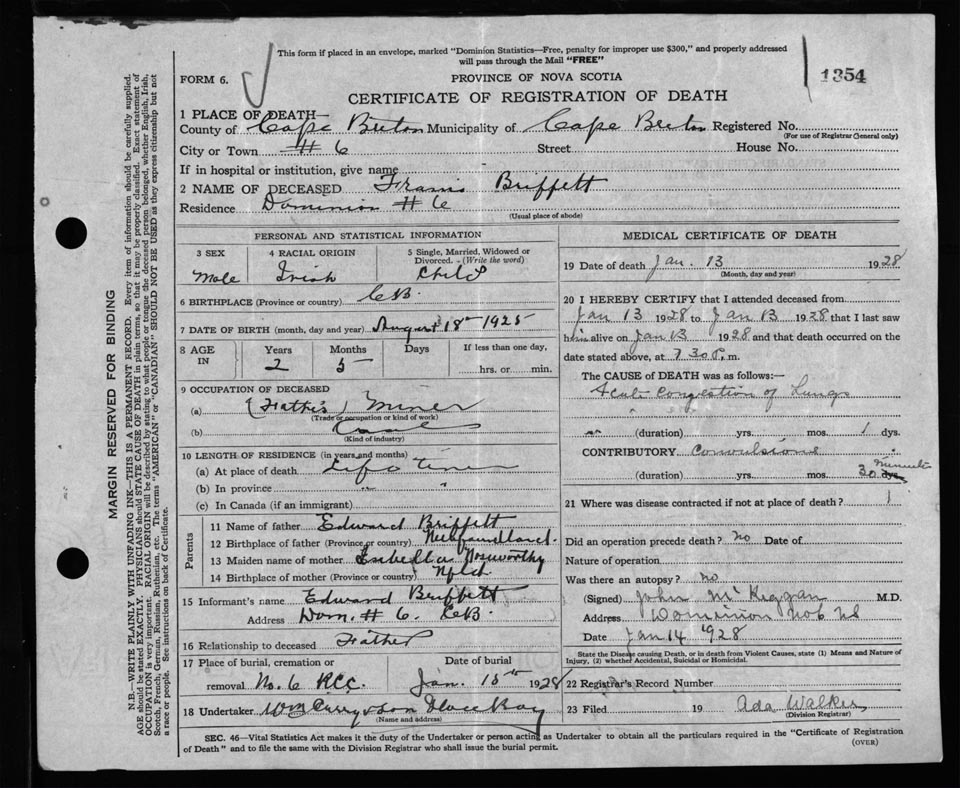 This form if placed in an envelope, marked "Dominion Statistics—Free, penalty for improper use $300," and properly addressed
will pass through the Mail "FREE"
FORM 6.
PROVINCE OF NOVA SCOTIA
1354
CERTIFICATE OF REGISTRATION OF DEATH
1 PLACE OF DEATH—
County of Cape Breton Municipality of Cape Breton Registered No.
(For use of Registrar General only)
City or Town #6 Street House No.
If in hospital or institution, give name
2 NAME OF DECEASED Francis Buffett
Residence Dominion #6
(Usual place of abode)
PERSONAL AND STATISTICAL INFORMATION
3 SEX
Male
4 RACIAL ORIGIN
Irish
5 Single, Married, Widowed or
Divorced.-(Write the word)
Child
6 BIRTHPLACE (Province or country) C.B.
7 DATE OF BIRTH (month, day and year) August 18th 1925
8 AGE IN
Years Months Days If less than one day,
2 5 hrs. or min.
9 OCCUPATION OF DECEASED
(a) (Father's) Miner
(Trade or occupation or kind of work)
(b) Coal
(Kind of industry)
10 LENGTH OF RESIDENCE (in years and months)
(a) At place of death Life time
(b) In province " "
(c) In Canada (if an immigrant)
Parents
11 Name of father Edward Briffett
12 Birthplace of father (Province or country) Newfoundland.
13 Maiden name of mother Nosworthy
14 Birthplace of mother (Province or country) Nfld
15 Informant's name Edward Buffett
Address Dom. #6. C.B.
16 Relationship to deceased Father
17 Place of burial, cremation or Date of burial
removal No. 6 RCC. Jan. 15th 1928
18 Undertaker Wm Curry & Son Glace Bay
(Name and address)
MEDICAL CERTIFICATE OF DEATH
19 Date of death Jan. 13 1928
(Month, day and year)
20 I HEREBY CERTIFY that I attended deceased from
Jan 13 1928 to Jan 13 1928 that I last saw
him alive on Jan 13 1928 and that death occurred on the
date stated above, at 7.30 P. m.
The CAUSE of DEATH was as follows:—
Acute Congestion of Lungs
(duration) yrs. mos. 1 dys.
CONTRIBUTORY Convulsions
(duration) yrs. mos. 30 dys. Minutes
21 Where was disease contracted if not at place of death?
Did an operation precede death? no Date of
Nature of operation
Was there an autopsy? no
(Signed) John McKeggan M.D.
Address Dominion No 6 NS
Date Jan 14 1928
State the Disease causing Death, or in death from Violent Causes, state (1) Means and Nature of
Injury, (2) whether Accidental, Suicidal or Homicidal.
22 Registrar's Record Number
23 Filed 19 Ada Walker
(Division Registrar)
SEC. 46—Vital Statistics Act makes it the duty of the Undertaker or person acting as Undertaker to obtain all the particulars required in the "Certificate of Registration
of Death" and to file the same with the Division Registrar who shall issue the burial permit.
(OVER)
MARGIN RESERVED FOR BINDING
N.B.—WRITE PLAINLY WITH UNFADING INK—THIS IS A PERMANENT RECORD. Every item of information should be carefully supplied.
AGE should be stated EXACTLY. PHYSICIANS should STATE CAUSE OF DEATH in plain terms, so that it may be properly classified. Exact statement of
OCCUPATION is very important. RACIAL ORIGIN will be described by stating to what people or tongue the deceased person belonged, whether English, Irish,
Scotch, French, German, Russian, Ruthenian, etc. The terms "AMERICAN" or "CANADIAN" SHOULD NOT BE USED as they express citizenship but not
a race or people. See instructions on back of Certificate.